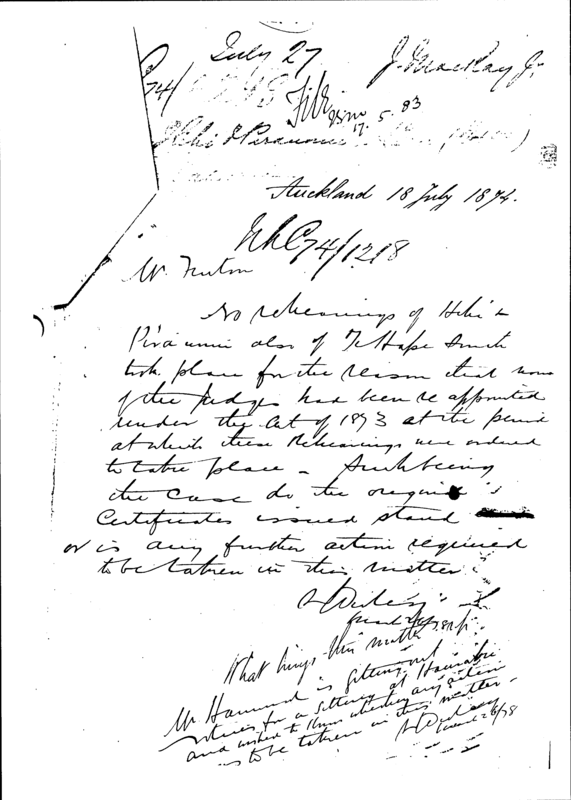 July 27
J. MacKay Jr.
74/
17. 5. 83
Auckland 18 July 1874.
NLC 74/1218
Mr.
No rehearings of Hihi &
Piraunui also of Te Hape South
took place for the reason that none
of the Judges had been re appointed
under the Act of 1873 at the period
at which these Rehearings were ordered
to take place - Such being
the case do the original
Certificates issued stand
or is any further action required
to be taken in this matter
What brings this matter up.
Mr Hammond is getting out
notices for a sitting at
and wished to know whether any action
is to be taken in this matter.